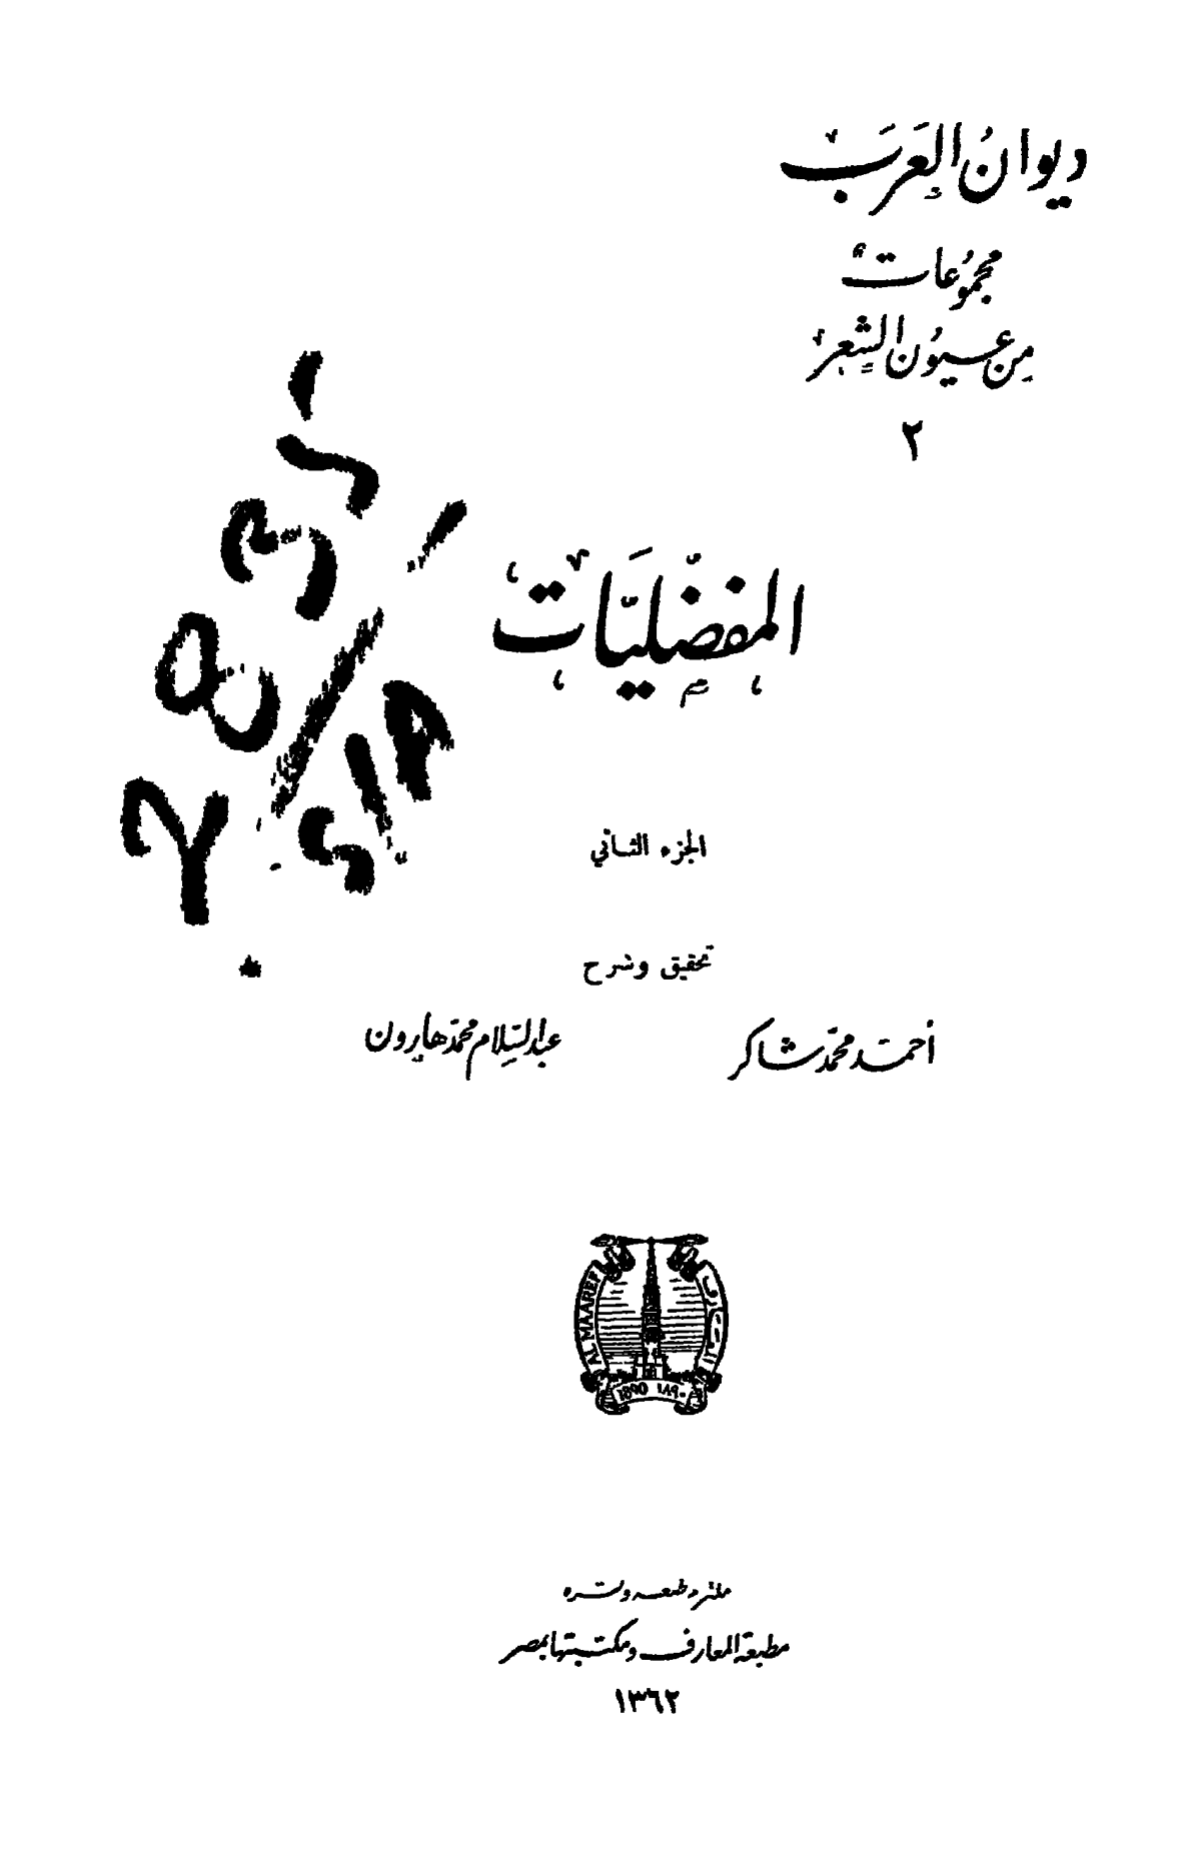 ديوانُ العَرَبْ
مجموُعات
مِن عيوُن الشِعر
٢
المفضّليَّات
الجزء الثاني
تحقيق وشرح
أحمَد محمّد شاكر
عبد السّلام محمّد هارون
AL MAAREF
المعارف
1890 ١٨٩٠
ملتزم طبعه ونشره
مطبعة المعارف ومكتبتها بمصر
١٣٦٢